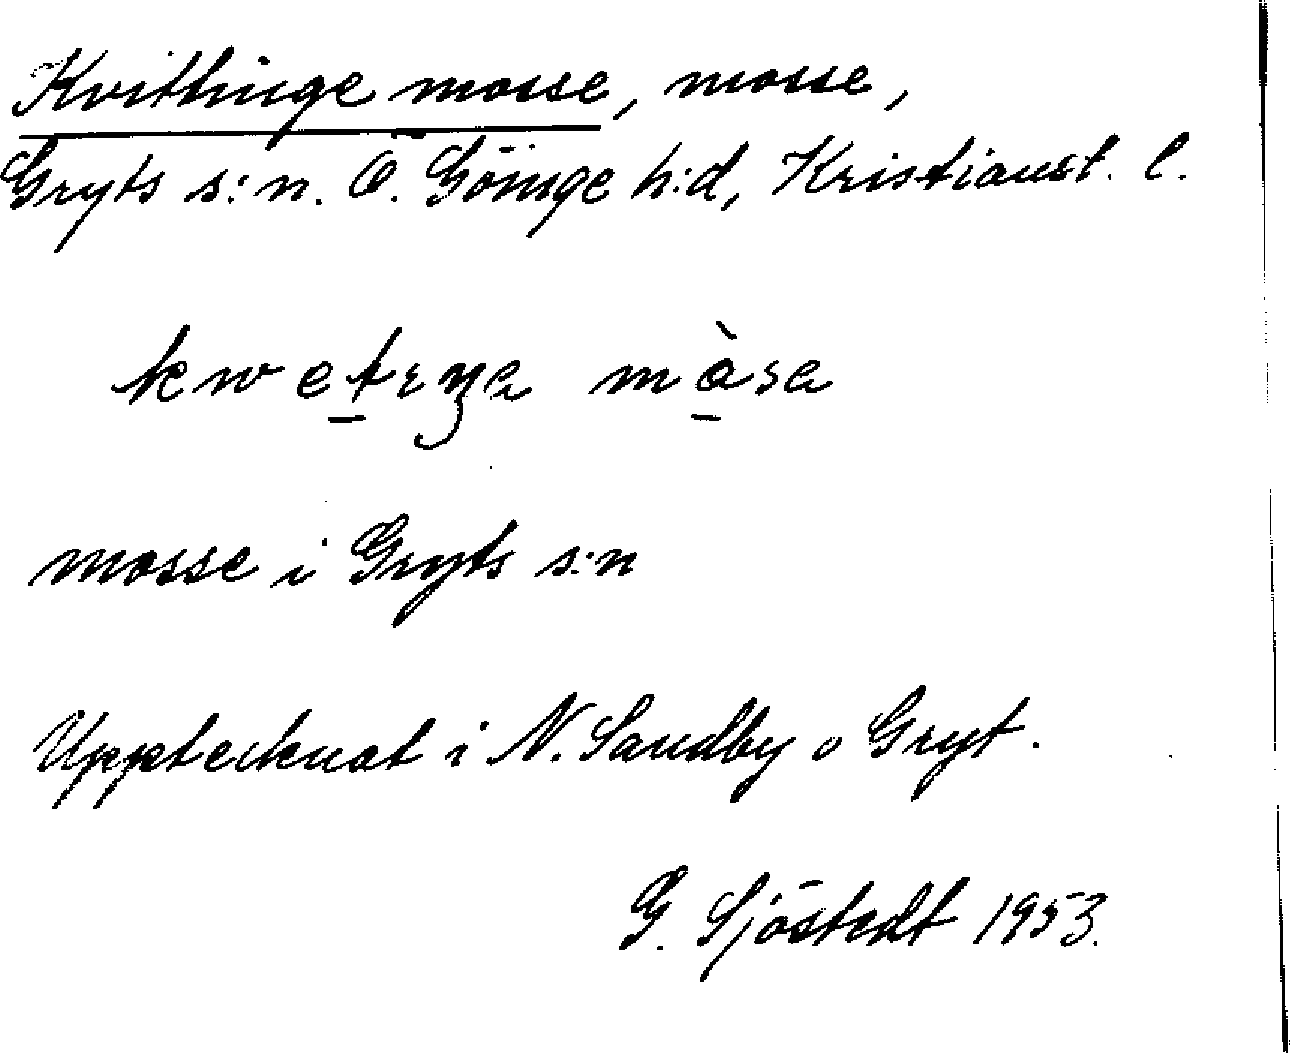 Kvittinge mosse, mosse,
Gryts s:n. Ö. Göinge h:d, Kristianst. l.
kwet̠ɪŋa mà̠sa
mosse i Gryts s:n
Upptecknat i N. Sandby o Gryt.
G. Sjöstedt 1953.